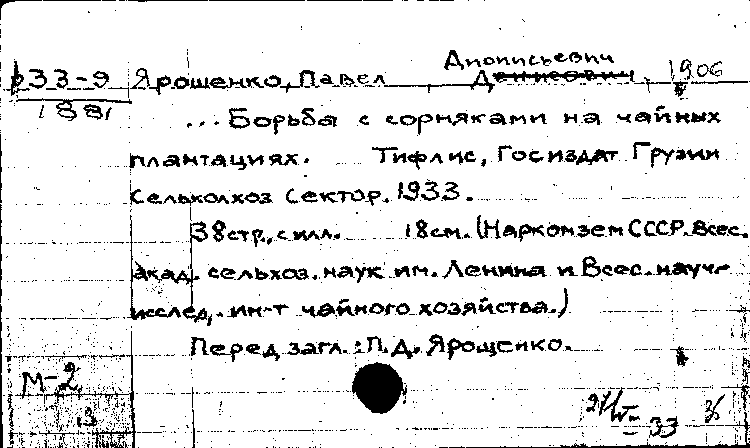 Дионисьевич
р33-9 Ярошенко, Павел , Денисович, 1906
1881
... Борьба с сорняками на чайных
плантациях. Тифлис, Госиздат Грузии
Сельколхоз сектор. 1933.
38стр., с илл. 18см. (Наркомзем СССР. Всес.
акад. сельхоз. наук им. Ленина и Всес. науч-
исслед. ин-т чайного хозяйства.)
Перед загл.: П.Д. Ярошенко.
М-2
33